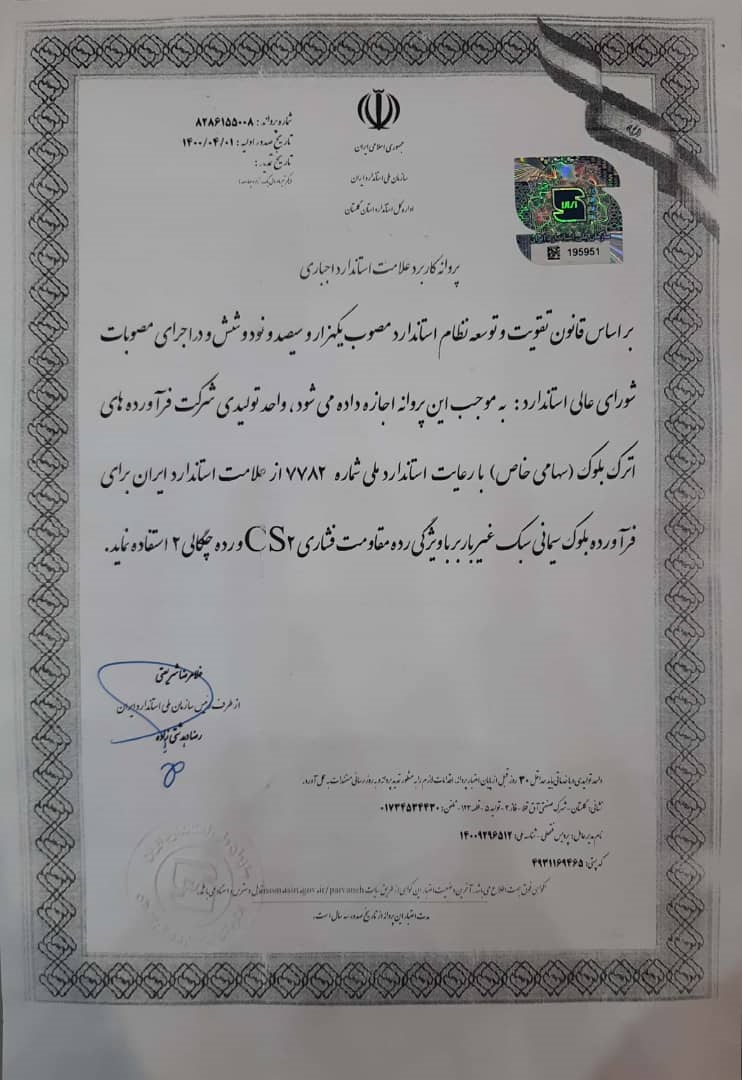 جمهوری اسلامی ایران
سازمان ملی استاندارد ایران
اداره کل استاندارد استان گلستان
شماره پروانه : ۸۲۸۶۱۵۵۰۰۸
تاریخ صدور اولیه : ۱۴۰۰/۰۴/۰۱
تاریخ تمدید :
195951
پروانه کاربرد علامت استاندارد اجباری
بر اساس قانون تقویت و توسعه نظام استاندارد مصوب یکهزار و سیصد و نود و شش و در اجرای مصوبات
شورای عالی استاندارد : به موجب این پروانه اجازه داده می شود، واحد تولیدی شرکت فرآورده های
اترک بلوک (سهامی خاص) با رعایت استاندارد ملی شماره ۷۷۸۲ از علامت استاندارد ایران برای
فرآورده بلوک سیمانی سبک غیر باربر با ویژگی رده مقاومت فشاری CS۲ و رده چگالی ۲ استفاده نماید.
غلامرضا شریعتی
از طرف رئیس سازمان ملی استاندارد ایران
واحد تولیدی / خدماتی باید حداقل ۳۰ روز قبل از پایان اعتبار پروانه، اقدامات لازم را به منظور تمدید پروانه و به روز رسانی مستندات به عمل آورد.
نشانی: گلستان - شهرک صنعتی آق قلا - فاز ۲ - تولید ۵ - قطعه ۱۲۲ - تلفن: ۰۱۷۳۴۵۳۴۴۳۰
نام مدیرعامل: پرویس - شناسه ملی: ۱۴۰۰۹۲۹۶۵۱۲
کد پستی: ۴۹۳۱۱۶۹۴۶۵
مدت اعتبار این پروانه از تاریخ صدور، سه سال است.